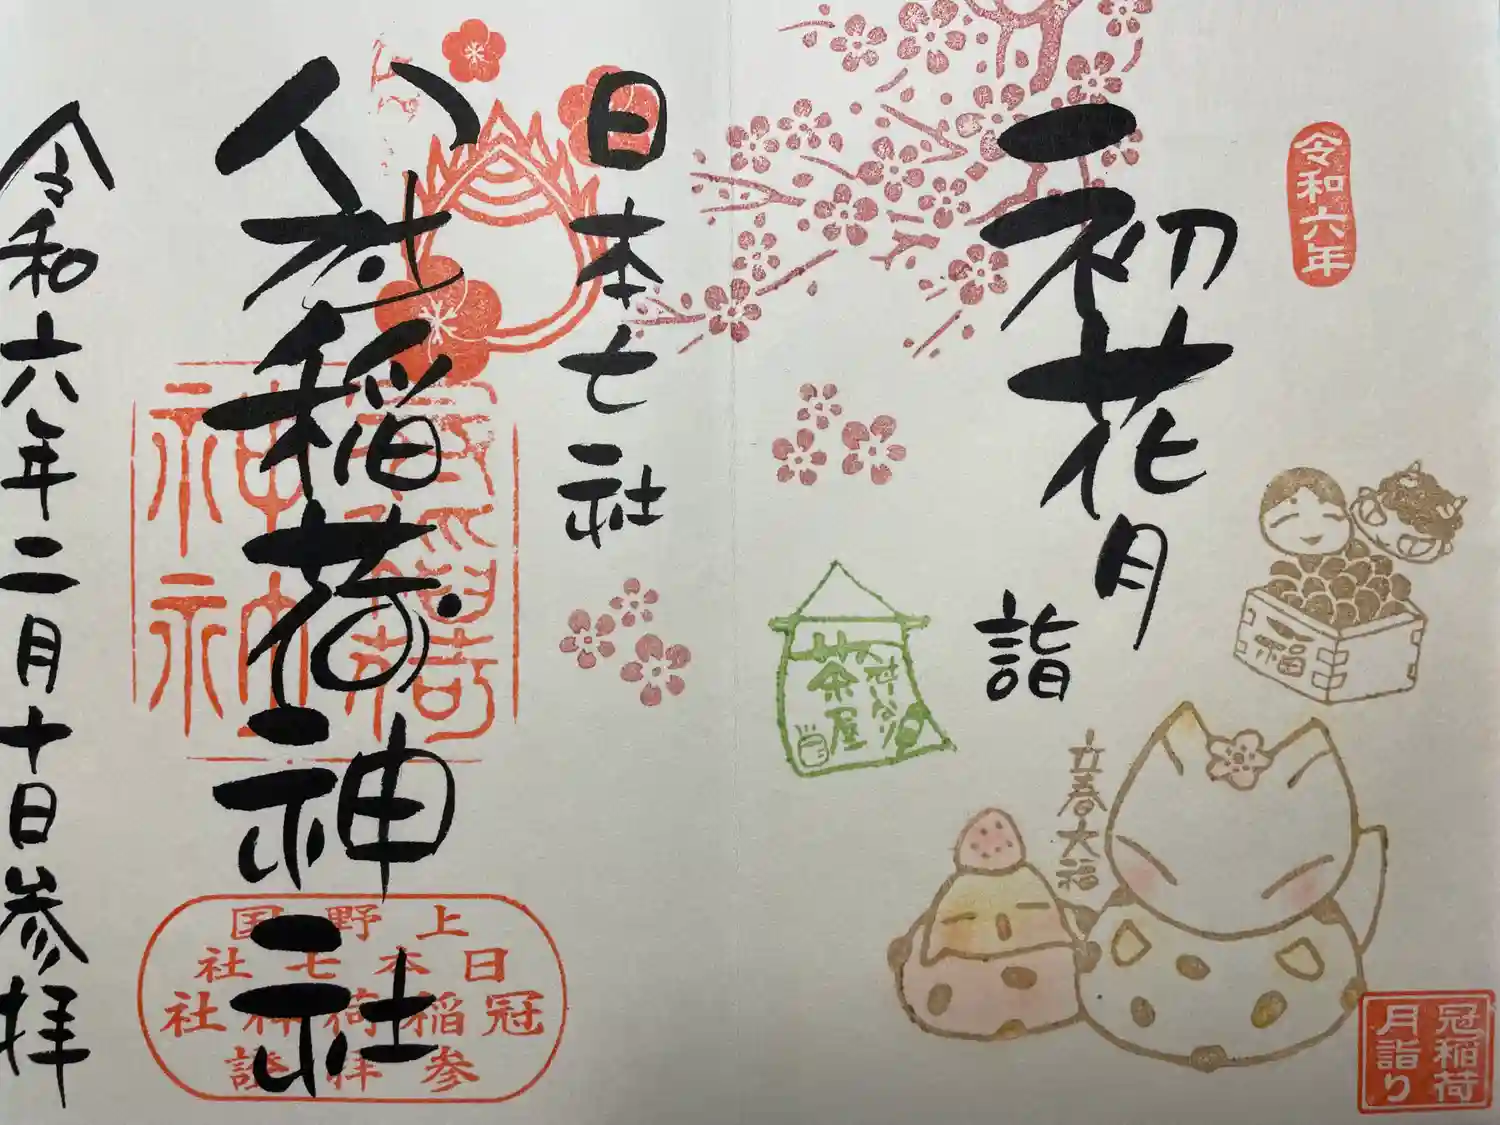 令和六年
初花月
詣
福
立春大福
茶屋
冠稲荷
月詣り
日本七社
冠稲荷神社
上野国
日本七社
冠稲荷神社
参拝證
令和六年二月十日参拝